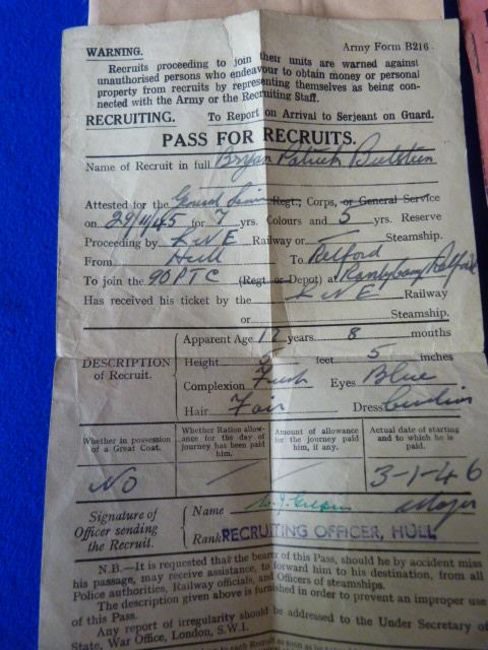 WARNING. Army Form B216.
Recruits proceeding to join their units are warned against
unauthorised persons who endeavour to obtain money or personal
property from recruits by representing themselves as being con-
nected with the Army or the Recruiting Staff.
RECRUITING. To Report on Arrival to Serjeant on Guard.
PASS FOR RECRUITS.
Name of Recruit in full Bryan Patrick
Attested for the General Service Regt., Corps, or General Service
on 29/11/45 for 7 yrs. Colours and 5 yrs. Reserve
Proceeding by L.N.E Railway or — Steamship.
From Hull To Retford
To join the 90 PTC (Regt or Depot) at Retford
Has received his ticket by the L.N.E Railway
or Steamship.
DESCRIPTION of Recruit.
Apparent Age 17 years 8 months
Height 5 feet 5 inches
Complexion Fresh Eyes Blue
Hair Fair Dress Civilian
Whether in possession of a Great Coat.
Whether Ration allow-
ance for the day of
journey has been paid
him.
Amount of allowance
for the journey paid
him, if any.
Actual date of starting
and to which he is
paid.
NO — — 3-1-46
Signature of
Officer sending
the Recruit.
Name Major
Rank RECRUITING OFFICER, HULL
N.B.—It is requested that the bearer of this Pass, should he by accident miss
his passage, may receive assistance, to forward him to his destination, from all
Police authorities, Railway officials, and Officers of steamships.
The description given above is furnished in order to prevent an improper use
of this Pass.
Any report of irregularity should be addressed to the Under Secretary of
State, War Office, London, S.W.1.